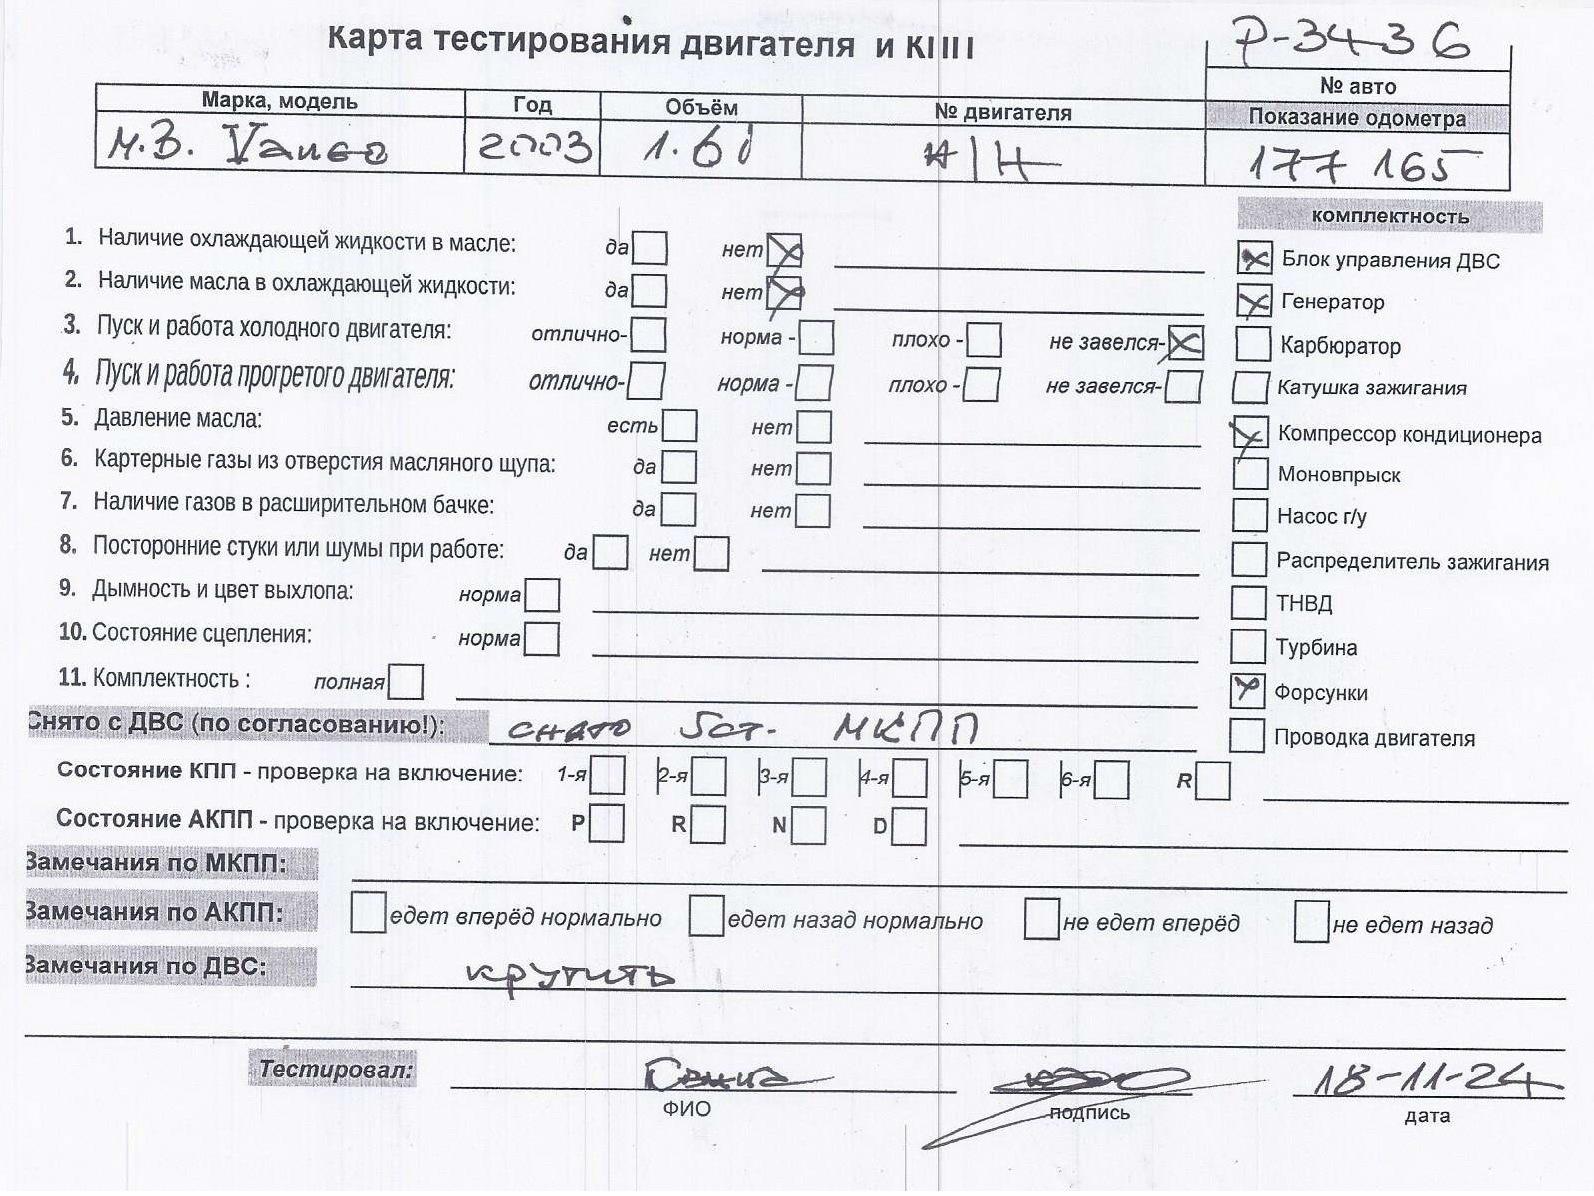 Карта тестирования двигателя и КПП
Р-3436
№ авто
Марка, модель Год Объём № двигателя Показание одометра
М.В. Vaneo 2003 1.6i Н/Н 177 165
комплектность
1. Наличие охлаждающей жидкости в масле: да нет
Блок управления ДВС
2. Наличие масла в охлаждающей жидкости: да нет
Генератор
3. Пуск и работа холодного двигателя: отлично- норма - плохо - не завелся-
Карбюратор
4. Пуск и работа прогретого двигателя: отлично- норма - плохо - не завелся-
Катушка зажигания
5. Давление масла: есть нет
Компрессор кондиционера
6. Картерные газы из отверстия масляного щупа: да нет
Моновпрыск
7. Наличие газов в расширительном бачке: да нет
Насос г/у
8. Посторонние стуки или шумы при работе: да нет
Распределитель зажигания
9. Дымность и цвет выхлопа: норма
ТНВД
10. Состояние сцепления: норма
Турбина
11. Комплектность : полная
Форсунки
Снято с ДВС (по согласованию!): снято 5ст. МКПП
Проводка двигателя
Состояние КПП - проверка на включение: 1-я 2-я 3-я 4-я 5-я 6-я R
Состояние АКПП - проверка на включение: P R N D
Замечания по МКПП:
Замечания по АКПП: едет вперёд нормально едет назад нормально не едет вперёд не едет назад
Замечания по ДВС: крутить
Тестировал: 18-11-24
ФИО подпись дата